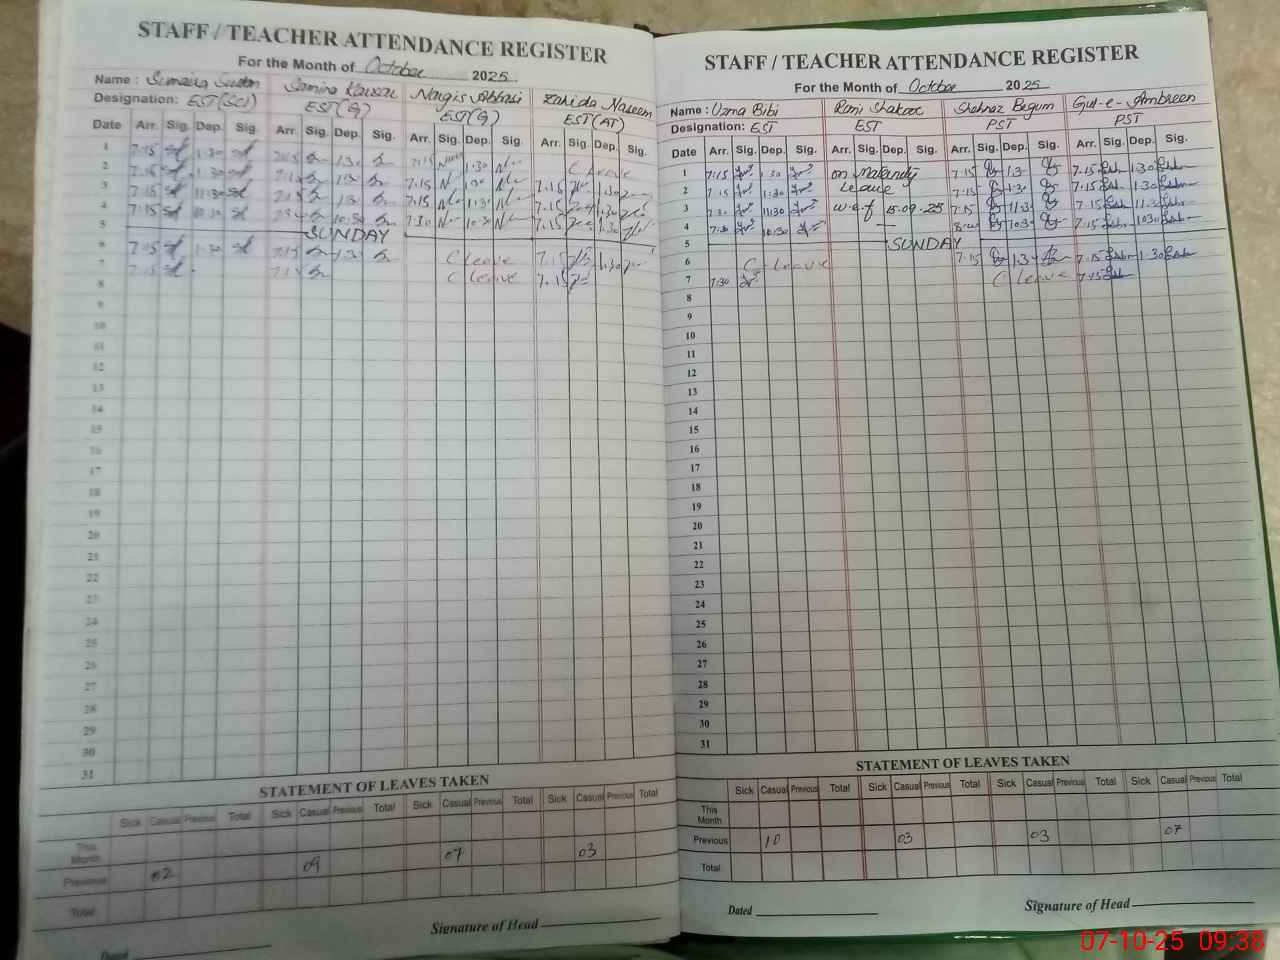 STAFF / TEACHER ATTENDANCE REGISTER
For the Month of October 2025
Name : Sumaira Samina Kausar Nargis Abbasi Zahida Naseem
Designation: EST(SCI) EST(G) EST(G) EST(AT)
Date Arr. Sig. Dep. Sig. Arr. Sig. Dep. Sig. Arr. Sig. Dep. Sig. Arr. Sig. Dep. Sig.
1 7.15 1.30 7.15 1.3 7:15 1.30 C Leave
2 7.15 1.30 7.15 1.3 7.15 1.30 7.15 1.30
3 7.15 11.30 7.15 1.3 7.15 7.15 1.30
4 7.15 10.30 10.30 7.30 10.30 7.15
5 SUNDAY
6 7.15 1.30 7.15 1.3 C Leave 7.15 1.30
7 7.15 7.15 C Leave 7.15
8
9
10
11
12
13
14
15
16
17
18
19
20
21
22
23
24
25
26
27
28
29
30
31
STATEMENT OF LEAVES TAKEN
Sick Casual Previous Total Sick Casual Previous Total Sick Casual Previous Total Sick Casual Previous Total
This Month
Previous 02 09 07 03
Total
Dated
Signature of Head
STAFF / TEACHER ATTENDANCE REGISTER
For the Month of October 2025
Name : Uzma Bibi Romi Shakoor Shehnaz Begum Gul-e-Ambreen
Designation: EST EST PST PST
Date Arr. Sig. Dep. Sig. Arr. Sig. Dep. Sig. Arr. Sig. Dep. Sig. Arr. Sig. Dep. Sig.
1 7.15 1.30 on 7.15 1.3 7.15 1.30
2 7.15 1.30 Leave 7.15 1.30 7.15 1.30
3 7.30 11.30 w.e.f 15.09.25 7.15 11.3 7.15 11.3
4 7.30 10.30 10.3 7.15 10.30
5 SUNDAY
6 C Leave 7.15 1.3 7.15 1.30
7 7.30 C Leave 7.15
8
9
10
11
12
13
14
15
16
17
18
19
20
21
22
23
24
25
26
27
28
29
30
31
STATEMENT OF LEAVES TAKEN
Sick Casual Previous Total Sick Casual Previous Total Sick Casual Previous Total Sick Casual Previous Total
This Month
Previous 10 03 03 07
Total
Dated
Signature of Head
07-10-25 09:38